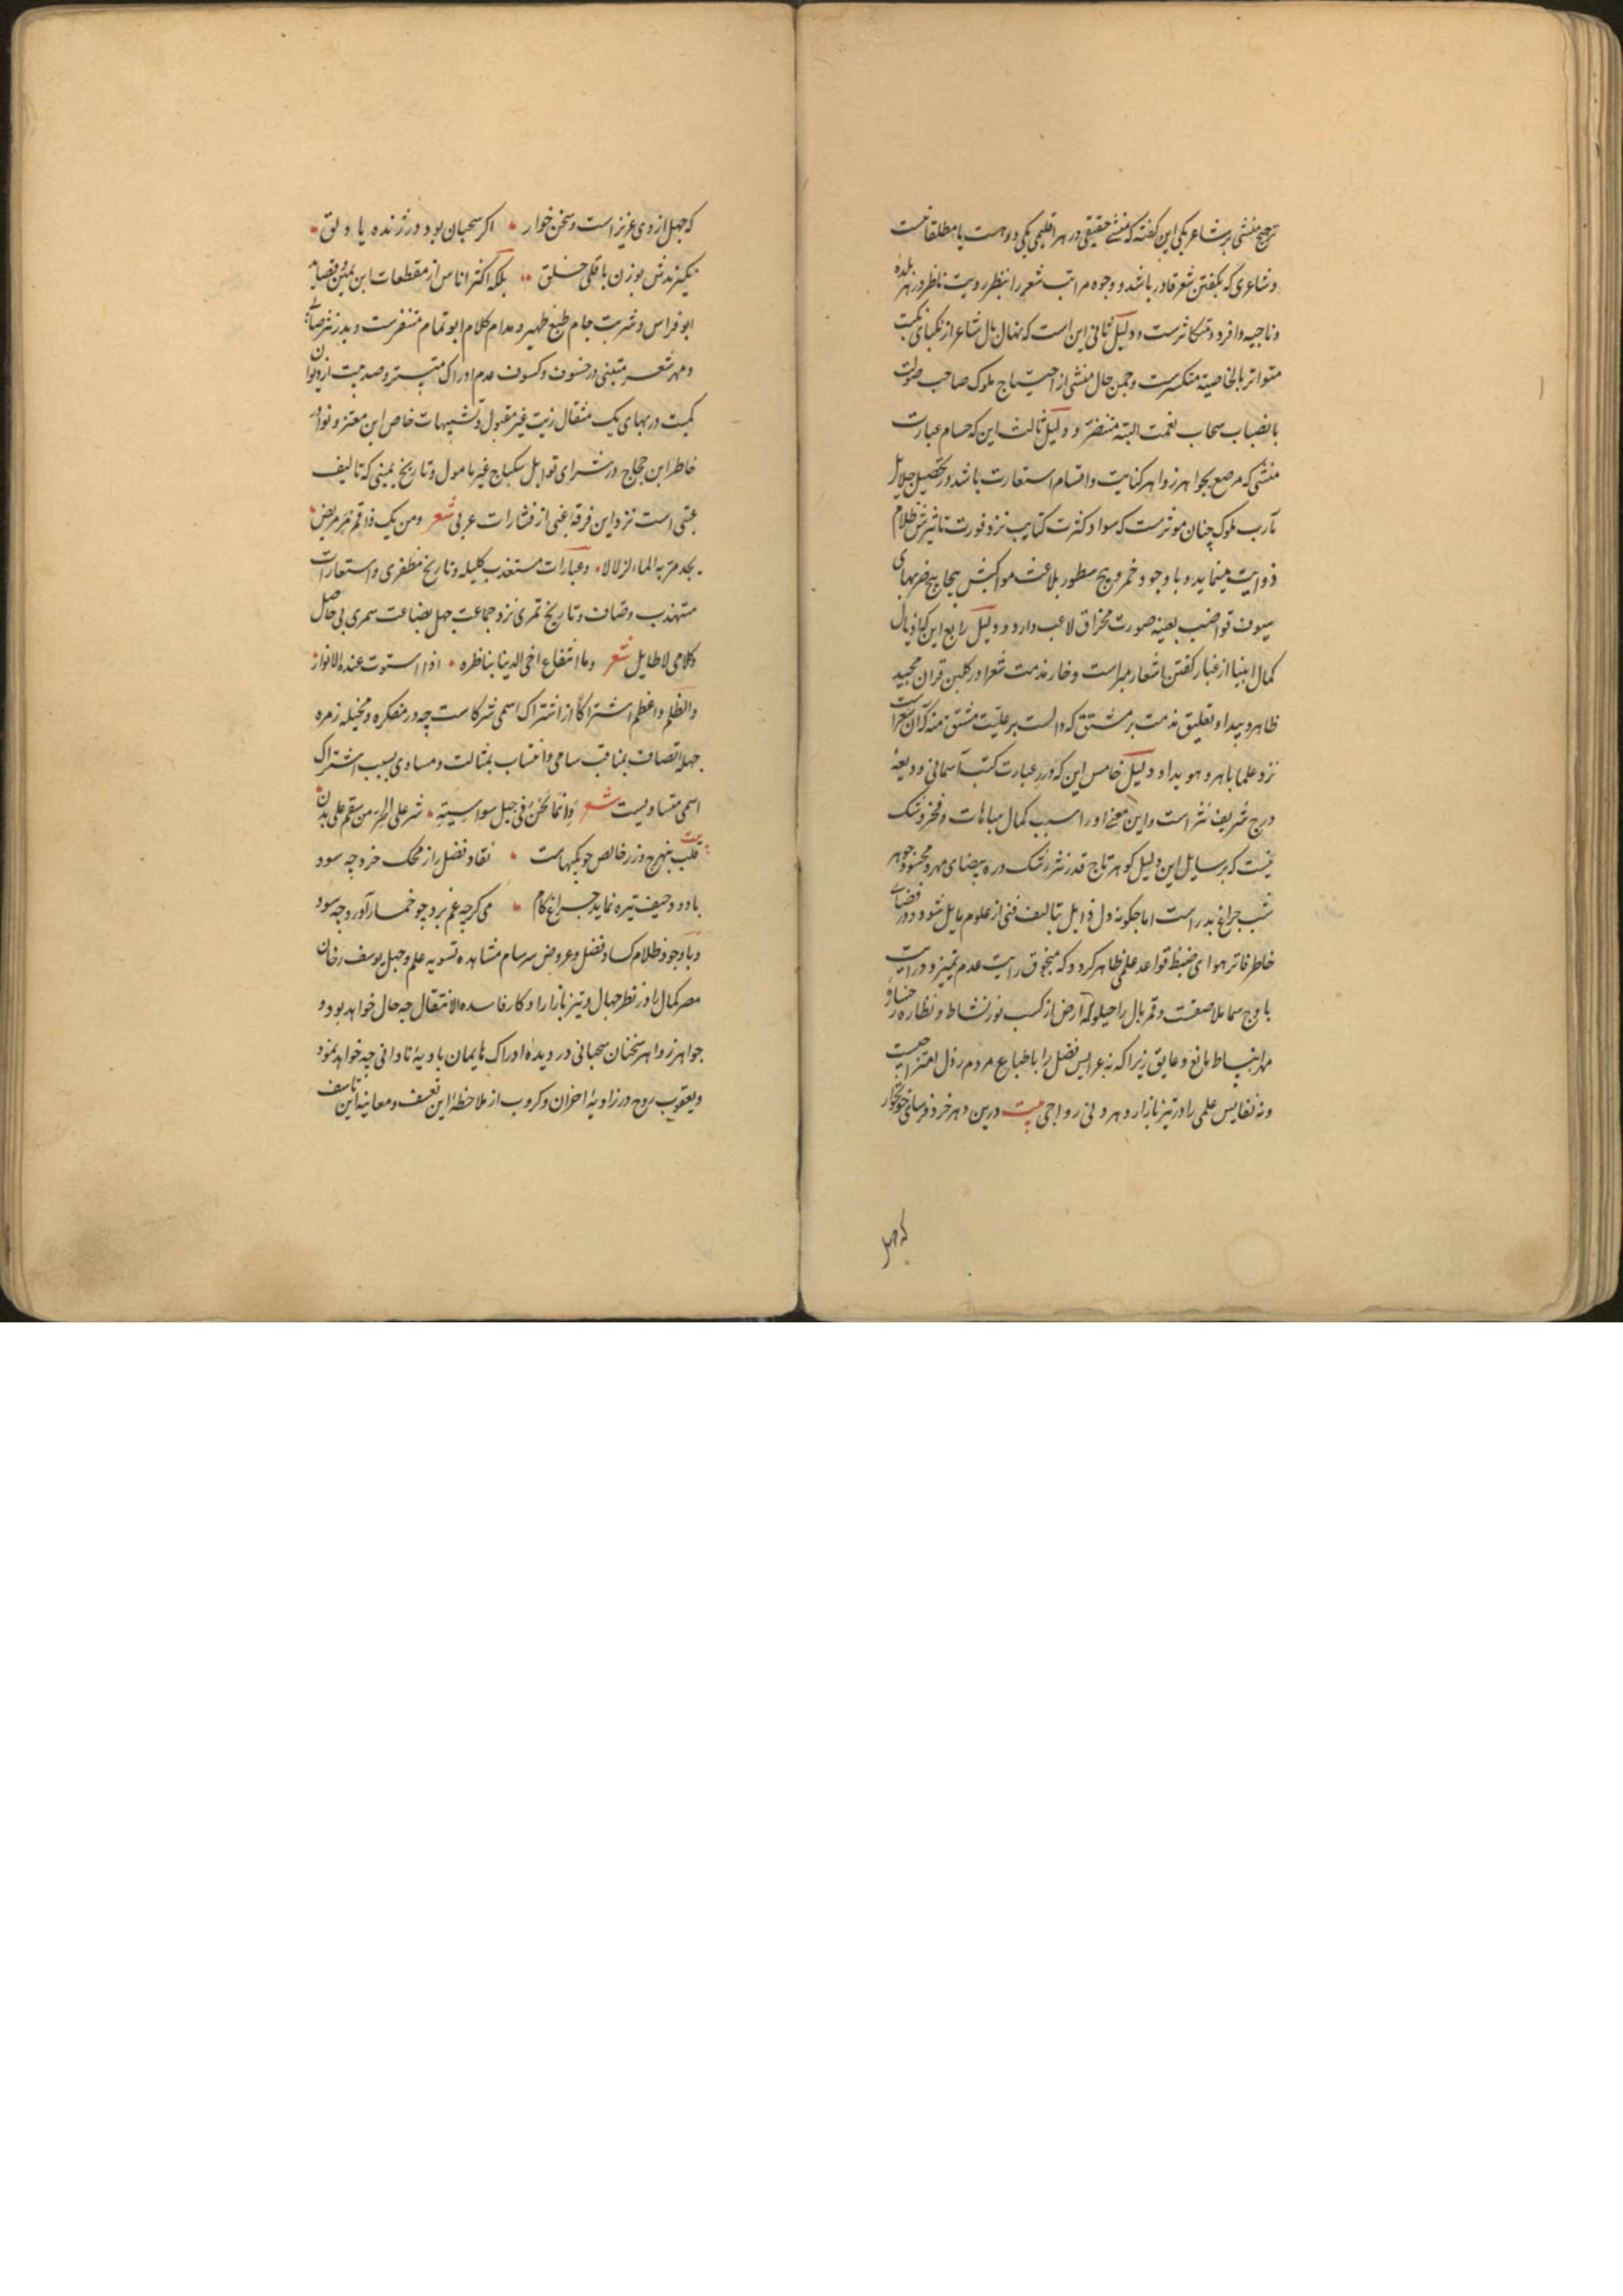 ترجیح منشی بر شاعر یکی این گفته که منشی حقیقی در هر اقلیمی یکی و دو هست یا مطلقا نیست
و شاعری که بگفتن شعر قادر باشد و وجوه مراتب شعر را بنظر رویت ناظر در هر بلده
و ناحیه وافر و متکاثرست و دلیل ثانی این است که نهال بال شاعر از نکبای نکبت
متواتر بالخاصیته منکسرست و چمن حال منشی از احتیاج ملوک صاحب صولت
بانصباب سحاب نعمت البته متنضر و دلیل ثالث این که حسام عبارت
منشی که مرصع بجواهر زواهر کنایت و اقسام استعارت باشد در تحصیل جلایل
مآرب ملوک چنان موثرست که سواد کثرت کتایب نزد فورت تاثیرش ظلام
ذوایت مینماید و با وجود سطور بلاغت مواکبش ضربهای
سیوف قواضب بعینه صورت مخراق لاعب دارد و دلیل رابع این که اذیال
کمال انبیا از غبار گفتن اشعار مبراست و خار مذمت شعرا در گلبن قران مجید
ظاهر و پیدا و تعلیق مذمت بر مشتق که دالست بر علیت مشتق منه که آن شعرست
نزد علما باهر و هویدا و دلیل خامس این که درر عبارت کتب آسمانی ودیعهٔ
درج شریف نثر است و این معنی او را سبب کمال مباهات و فخر و شک
نیست که بر سایل این دلیل گوهر تاج قدر نثر رشک دره بیضای مهر و محسود جوهر
شب چراغ بدر است اما چگونه دل ذابل بتالیف فنی از علوم مایل شود و در فضای
خاطر فاتر هوای ضبط قواعد علمی ظاهر گردد که منجوق رایت عدم تمییز و درایت
باوج سما ملاصقت و قمر بال را حیلوله ارض از کسب نور نشاط و نظاره رخسار
مهر انبساط مانع و عایق زیرا که نه عرایس فضل را باطباع مردم رذل امتزاجیست
و نه نفایس علمی را در تیز بازار دهر دنی رواجی بیت درین دهر خرد فرسای خونخوار
که جهل
که جهل از وی عزیز است و سخن خوار اگر سحبان بود در ژنده یا دلق
نگیرندش بوزن باقلی خلق بلکه اکثر اناس از مقطعات ابن یمین و قصاید
ابو فراس و شربت جام طبع ظهیر و مدام کلام ابو تمام متنفرست و بدر نثر صابی
و مهر شعر متنبی در خسوف و کسوف عدم ادراک مستتر و صد بیت از دیوان
کمیت در بهای یک مثقال زیت غیر مقبول و تشبیهات خاص ابن معتز و نوادر
خاطر ابن حجاج در شرای توابل سکباج غیر مامول و تاریخ یمینی که تالیف
عتبی است نزد این فرقه غبی از فشارات عربی شعر و من یک ذا فم مر مریض
یجد مرا به الماء الزلالا و عبارات مستعذب کلیله و تاریخ مظفری و استعارات
مستهذب وصاف و تاریخ قمری نزد جماعت جهل بضاعت سمری بی حاصل
و کلامی لا طایل شعر و ما انتفاع اخی الدنیا بناظره اذا استوت عنده الانوار
والظلم و اعظم اشتراکا از اشتراک اسمی شرکاست چه در متفکره و مخیله زمره
جهله اتصاف بمناقب سامی و انتساب بمثالب و مساوی بسبب اشتراک
اسمی متساویست شعر و انما نحن فی جیل سواسیة شر علی الحر من سقم علی بدن
بیت قلب بنهرج و زر خالص چو یکبهاست نقاد فضل را ز محک خرد چه سود
با دود حیف تیره نماید چراغ کام می گرچه غم برد چو خمار آورد چه سود
و با وجود ظلام کساد فضل و عروض سرسام مشاهده تسویه علم و جهل یوسف رخان
مصر کمال را در نظر جهال و تیز بازار را و کار فاسده الانتقال چه حال خواهد بود و
جواهر زواهر سخنان سحبانی در دیده ادراک هایمان بادیهٔ نادانی چه خواهد نمود
و یعقوب روح در زاویهٔ احزان و کروب از ملاحظهٔ این تعسف و معاینه این تاسف